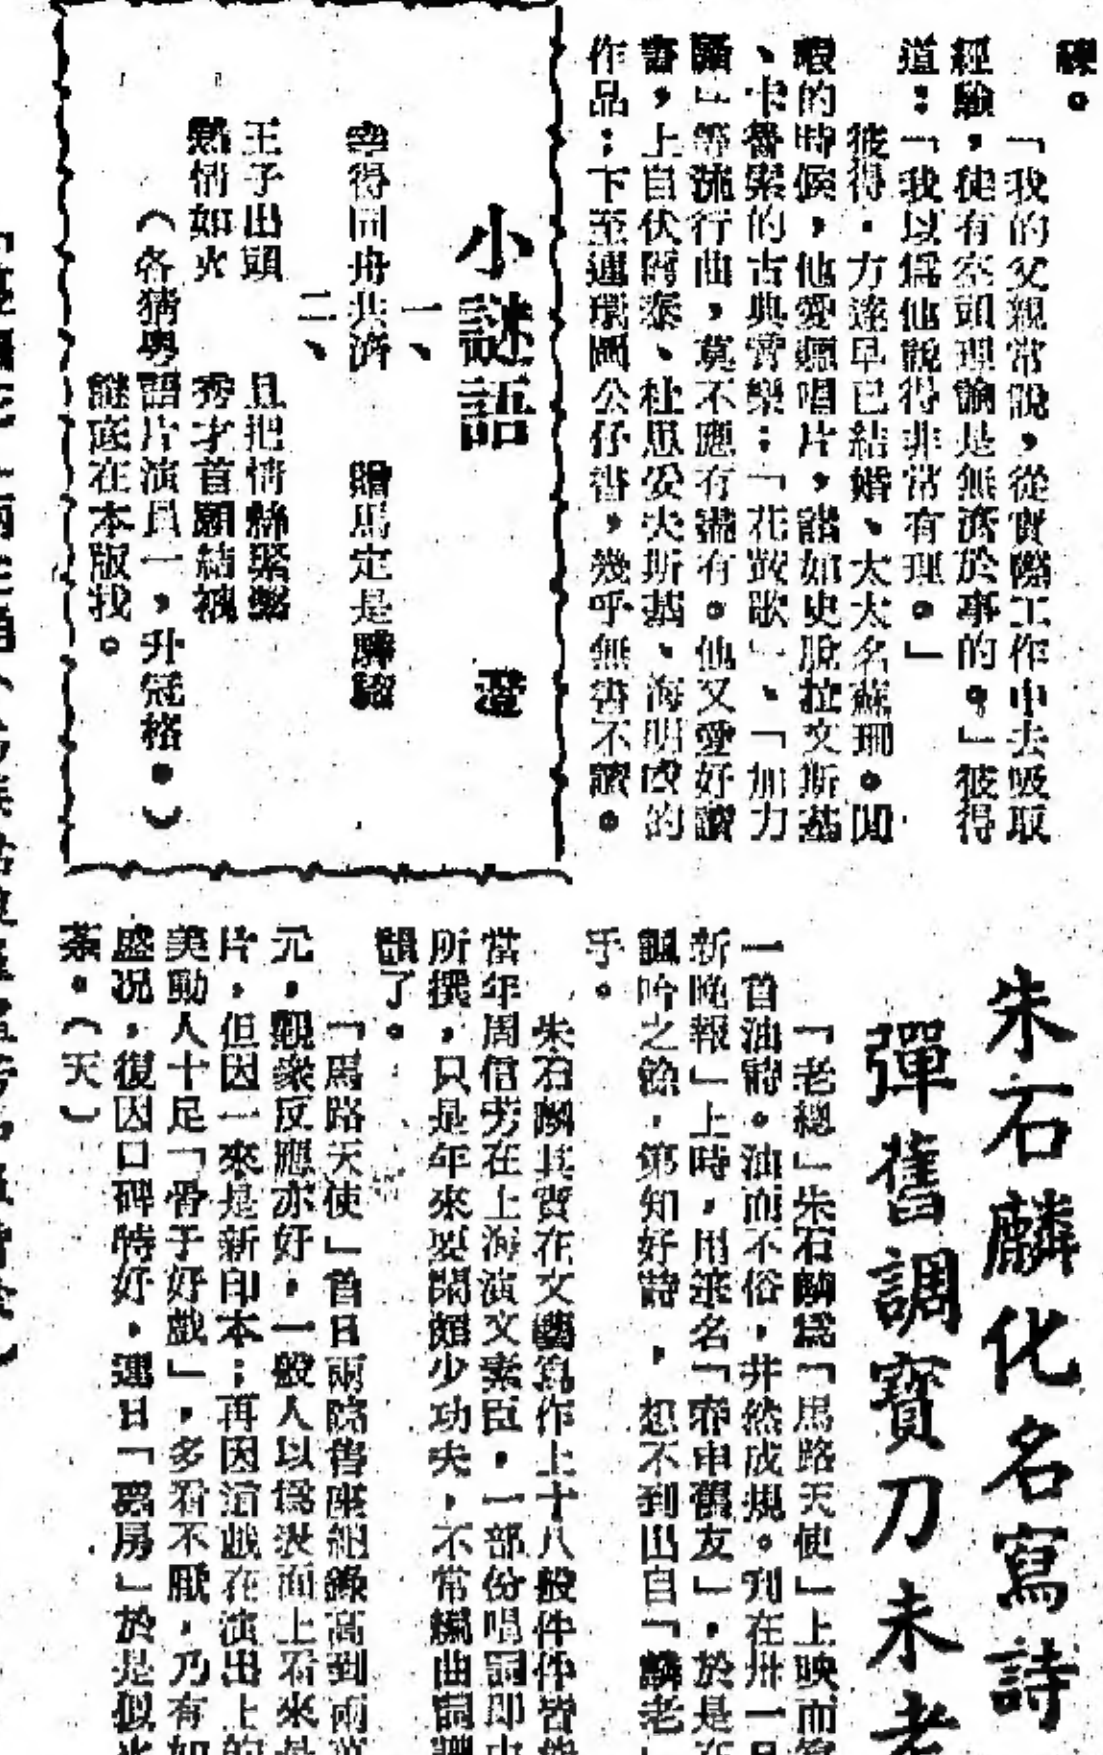 碑。
「我的父親常說，從實際工作中去吸取
經驗，徒有空頭理論是無濟於事的。」彼得
道：「我以爲他說得非常有理。」
彼得．方達早已結婚、太太名蘇珊。閒
暇的時候，他愛聽唱片，諸如史脫拉文斯基
、卡魯索的古典音樂；「花鼓歌」、「加力
騷」等流行曲，莫不應有盡有。他又愛好讀
書，上自伏爾泰、杜思妥夫斯基、海明威的
作品；下至連環圖公仔書，幾乎無書不讀。
小謎語　澄
一、
幸得同舟共濟　贈馬定是驊騮
二、
王子出頭　且把情絲緊繫
熱情如火　秀才首願結襪
（各猜粵語片演員一，升冠格．）
謎底在本版找。
朱石麟化名寫詩
彈舊調寶刀未老
「老總」朱石麟爲「馬路天使」上映而寫
一首油詩。油而不俗，井然成規。刋在卅一日
新晚報」上時，用筆名「春申舊友」，於是在
諷吟之餘，第知好詩，想不到出自「麟老」
手。
朱石麟其實在文藝寫作上十八般件件皆能
當年周信芳在上海演文素臣，一部份唱詞即由
所撰，只是年來要鬧頗少功夫，不常編曲詞
韻了。
「馬路天使」首日兩院售座紀錄高到兩萬
元，觀衆反應亦好，一般人以爲表面上看來是
片，但因一來是新印本；再因這戲在演出上的
美動人十足「骨子好戲」，多看不厭，乃有如
盛况，復因口碑特好，連日「票房」於是似火
荼。（天）